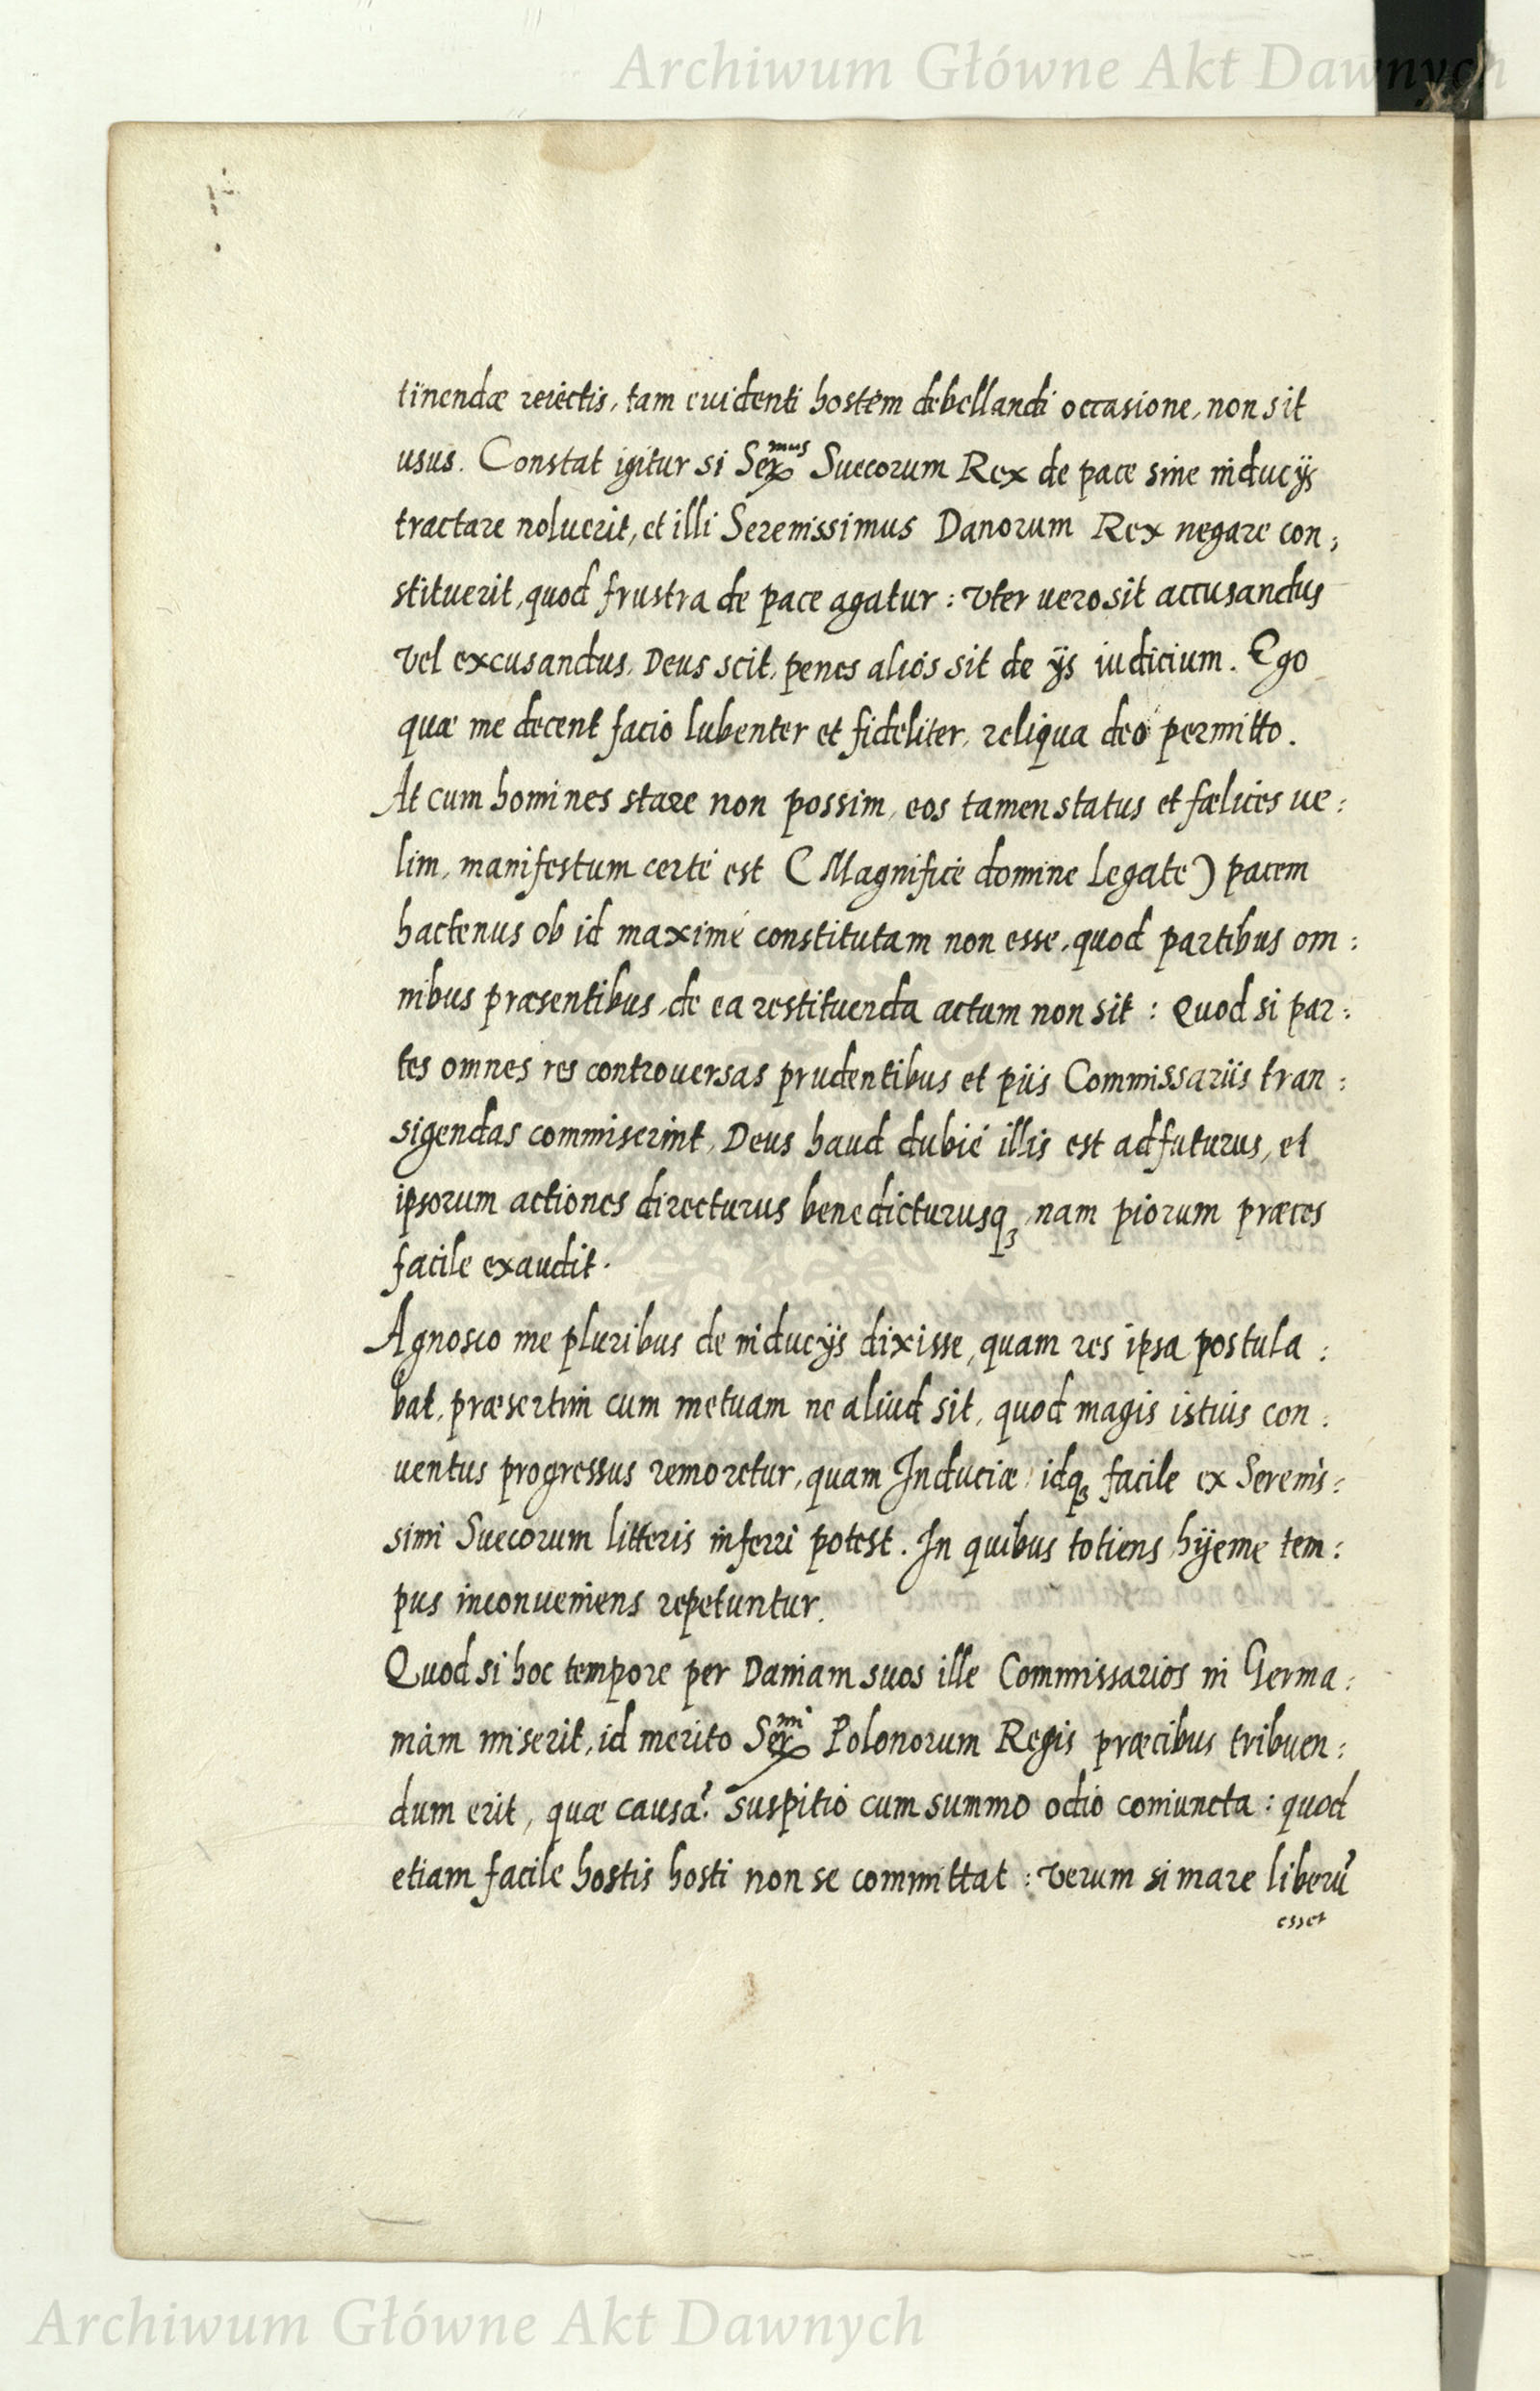 Archiwum Główne Akt Dawnych
tinendæ reiectis, tam euidenti hostem debellandi occasione, non sit
usus. Constat igitur si Ser^mus Suecorum Rex de pace sine inducijs
tractare noluerit, et illi Serenissimus Danorum Rex negare con;
stituerit, quod frustra de pace agatur: Vter uero sit accusandus
Vel excusandus, Deus scit, penes alios sit de ijs iudicium. Ego
quæ me decent facio lubenter et fideliter, reliqua deo permitto.
At cum homines stare non possim, eos tamen status et fœlices ue:
lim, manifestum certé est (Magnifice domine Legate) pacem
hactenus ob id maximé constitutam non esse, quod partibus om:
nibus præsentibus, de ea restituenda actum non sit: Quod si par:
tes omnes res controuersas prudentibus et piis Commissariis tran:
sigendas commiserint, Deus haud dubié illis est adfuturus, et
ipsorum actiones directurus benedicturusq, nam piorum præces
facile exaudit.
Agnosco me pluribus de inducijs dixisse, quam res ipsa postula:
bat, præsertim cum metuam ne aliud sit, quod magis istius con:
uentus progressus remoretur, quam Induciæ idq facile ex Serenis:
simi Suecorum litteris inferri potest. In quibus totiens hyeme tem:
pus inconueniens repetuntur.
Quod si hoc tempore per Daniam suos ille Commissarios in Germa:
niam miserit, id merito Ser^mi Polonorum Regis præcibus tribuen:
dum erit, quæ causa? suspitio cum summo odio coniuncta: quod
etiam facile hostis hosti non se committat: Verum si mare liberũ
esset
Archiwum Główne Akt Dawnych